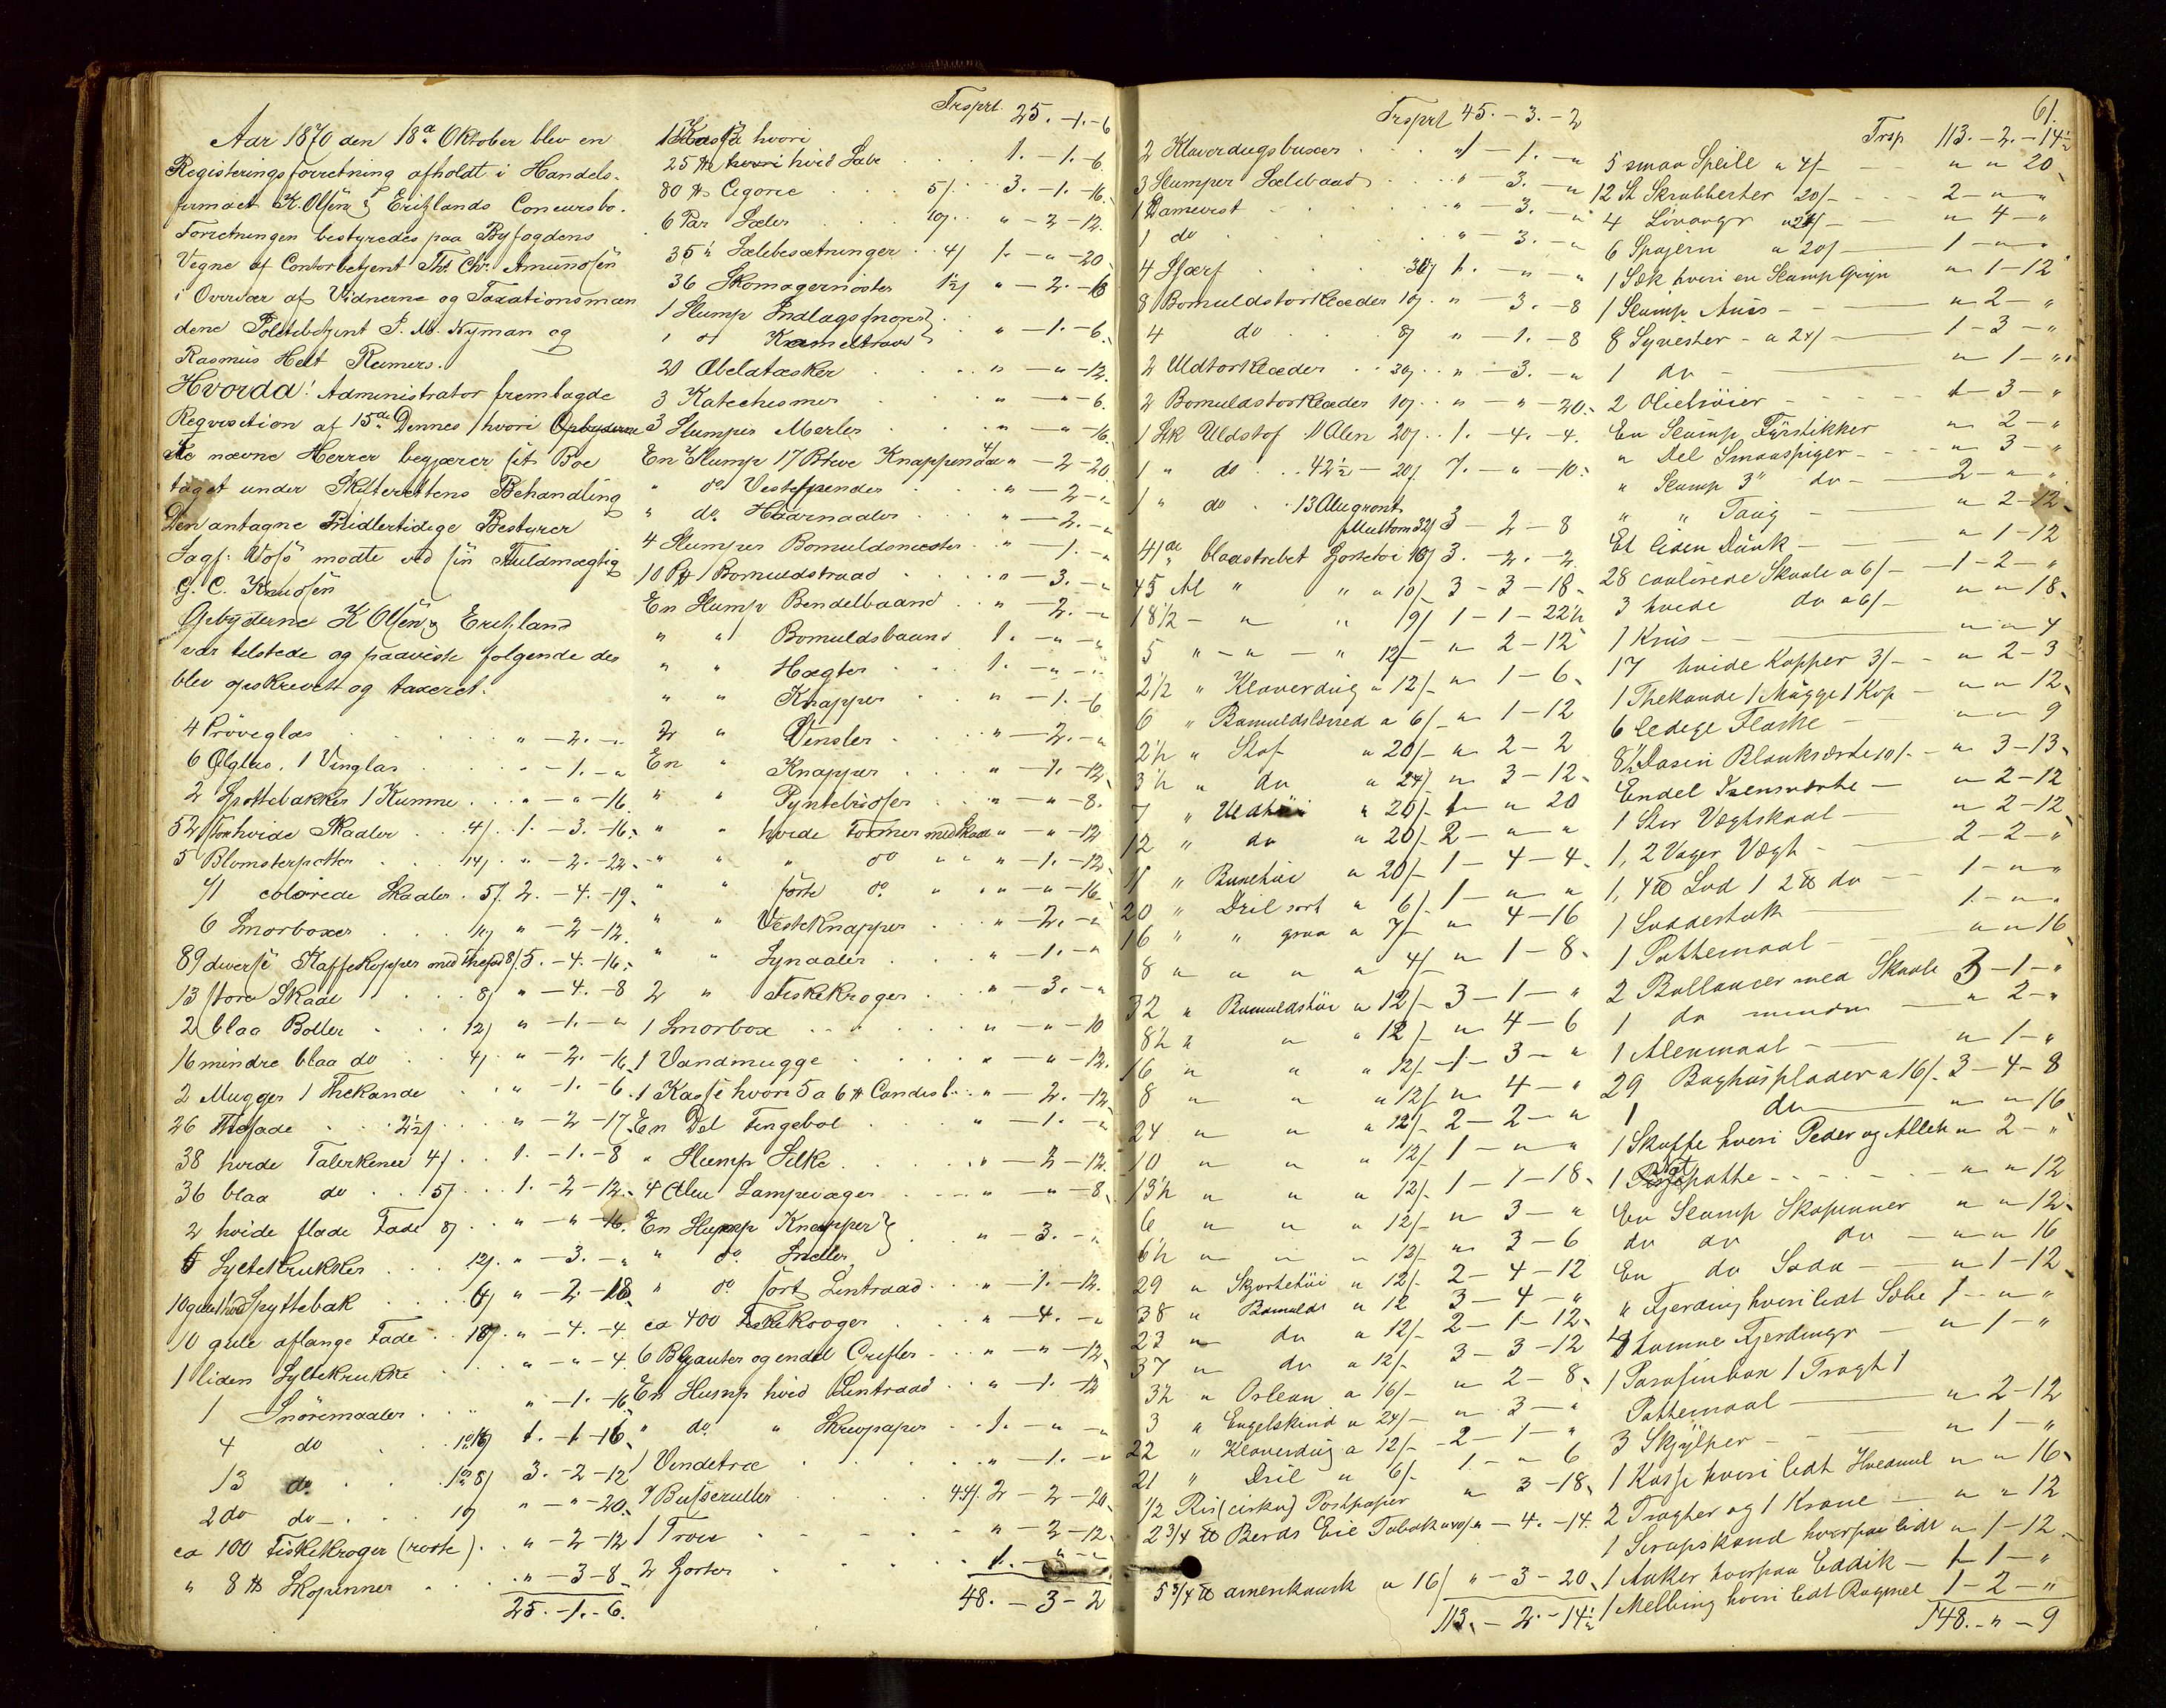 Aar 1870 den 18de Oktober blev en
Registeringsforretning afholdt i Handels-
firmaet K. Olsen & Eritzlands Concursbo.
Forretningen bestyredes paa Byfogdens
Vegne af Contorbetjent Ths. Chr. Amundsen
i Overvær af Vidnerne og Taxationsmæn
dene Politibetjent P. M. Nyman og
Rasmus Helt Reimers.
Hvorda! Administrator fremlagde
Reqvisition af 15de Dennes hvori
nævne Herrer begjærer sit Boe
taget under Skifterettens Behandling
Den antagne Midlertidige Bestyrer
Sagf. Voss mødte ved sin Fuldmægtig
G. C. Knudsen
Opbyderne K Olsen & Eritzland
var tilstede og paaviste følgende der
blev opskrevet og taxeret.
4 Prøveglas " - 2. - "
6 Ølglas, 1 Vinglas " - 1. - "
2 Spyttebakker 1 Kumme " - " - 16
52 hvide Skaaler 4/ 1. - 3. - 16
5 Blomsterpotter 14/ " - 2. - 22
71 colørede Skaaler 5/ 2. - 4. - 19
6 Smørboxer 10/ " - 2 - 12
89 diverse Kaffekopper med Thefad 8/ 5. - 4. - 16
13 store Skaale 8/ " - 4. - 8
2 blaa Boller 12/ " - 1. - "
16 mindre blaa do 4/ " - 2. - 16
2 Mugger 1 Thekande " - 1. - 6
26 Thefade 2½/ " - 2 - 17
38 hvide Talerkener 4/ 1. - 1. - 8
36 blaa do 5/ 1. - 2 - 12
2 hvide flade Fade 8/ " - " - 16
6 Syltekrukker 12/ " - 3. - "
10 gule Spyttebak 6/ " - 2 - 18
10 gule aflange Fade 18/ " - 4. - 4
1 liden Syltekrukke " - " - 4
1 Snøremaaler " - 1. - 16
4 do 1. - 1 - 16
13 do 3. - 2 - 12
2 do do 10/ " - " - 20
ca 100 Fiskekroger (roste) " - 2 - 12
" 8 ℔ Skopinner " - 3 - 8
25. - 1. - 6
Trsprt. 25. - 1. - 6
1 Kasse hvori
25 ℔ hvid Sæbe 1. - 1. - 6
80 ℔ Cigorie 5/ 3. - 1. - 16
6 Par Sæler 10/ " - 2 - 12
35 " Sælebesætninger 4/ 1. - " - 20
36 Skomagernister 1½/ " - 2. - 6
1 Slump Indlagssnore
" do Kameltraad " - 1. - 6
20 Obelatæsker " - " - 12
3 Katechismer " - " - 6
3 Slumper Merler " - " - 16
En Slump 17 Breve Knappenaal 4/ " - 2 - 20
" do Vestespender " - 2 - "
" do Haarnaaler " - 2. - "
4 Slumper Bomuldsnøster " - 1. - "
10 Pk Bomuldstraad " - 3. - "
En Slump Bendelbaand " - 2. - "
" " Bomuldsbaand 1. - " - "
" " Hægter 1. - " - "
" " Knapper " - 1. - 6
2 " Vinsler " - 2. - "
En " Knapper " - 1. - 12
" " Pyntebødser " - " - 8
" " hvide Former med Traad " - " - 12
" " " do " " " - 1. - 12
" " sorte do " " " - " - 16
" " Vesteknapper " - 2. - "
" " Synaaler " - 1. - "
2 " Fiskekroger " - 3. - "
1 Smorbox " - " - 10
1 Vandmugge " - " - 12
1 Kasse hvori 5 a 6 ℔ Candis " - 2. - 12
En Del Fingebøl " - 1. - "
" Slump Silke " - 2 - 12
4 Alen Lampevæger " - " - 8
En Slump Knapper
" do Sneller " - 3. - "
" do sort Lintraad " - 1. - 12
ca 400 Fiskekroger " - 4. - "
6 Blyanter og endel Grifler " - " - 12
En Slump hvid Lintraad " - 1. - 12
" do " Skrivpapir 1. - " - "
1 Vindetræ " - 1. - "
7 Busseruller 44/ 2 - 2 - 20
1 Troie " - 2 - 12
2 Skjorter 1. - " - "
48. - 3 - 2
Trsprt 45. - 3. - 2
2 Klaverdugsbuxer " - 1. - "
3 Slumper Sælebaand " - 3. - "
1 Damevest " - 3. - "
1 do " - 3. - "
4 Skjærf 30/ 1. - " - "
8 Bomuldstorklæder 10/ " - 3. - 8
4 do 8/ " - 1. - 8
2 Uldtorklæder 30/ " - 3. - "
2 Bomuldstorklæder 10/ " - " - 20
1 Stk Uldstof 11 Alen 20/ 1. - 4. - 4
1 " do 42½ - 20/ 7. - " - 10
1 " do 13 Alugront
Multom 32/ 3 - 2 - 8
41 al blaastribet Skjortetoi 10/ 3. - 2. - 2
45 Al " " a 10/ 3 - 3 - 18
18½ - " " 19/ 1 - 1 - 22½
5 " - " - " 12/ " 2 - 12
2½ " Klaverdug a 12/ " 1 - 6
6 " Bomuldslærred a 6/ " 1 - 12
2½ " Stof a 20/ " 2 - 2
3½ " do a 24/ " 3 - 12
7 " Uldtöi a 20/ 1 - " 20
12 " do a 20/ 2 - " - "
11 " Buxetöi a 20/ 1 - 4 - 4
20 " Dril sort a 6/ 1 - " - "
16 " " graa a 7/ " 4 - 16
8 " " " a 4/ " 1 - 8
32 " Bomuldstöi a 12/ 3 - 1 - "
8½ " " a 12/ " 4 - 6
16 " " a 12/ 1 - 3 - "
8 " " a 12/ " 4 - "
24 " " a 12/ 2 - 2 - "
10 " " a 12/ 1 - " - "
13½ " " a 12/ 1 - 1 - 18
6 " " a 12/ " 3 - "
6½ " " a 12/ " 3 - 6
29 " Skjortetöi a 12/ 2 - 4 - 12
38 " Bomulds a 12 3 - 4 - "
23 " do a 12/ 2 - 1 - 12
37 " do a 12/ 3 - 3 - 12
3½ " Orlean a 16/ " 2 - 8
3 " Engelskind a 24/ " 3 - "
22 " Klaverdug a 12/ 2 - 1 - "
21 " Dril a 6/ 1 - " 6
1/2 Ris (cirka) Postpapir " 3 - 18
2 3/4 ℔ Berds Eie Tobak - 4. - 14
5 3/4 ℔ amerikansk a 16/ " - 3 - 20
113. - 2. - 14½
61.
Trsp 113. - 2. - 14½
5 smaa Speile a 4/ " " 20
12 St Skrubberter 20/ 2 - " - "
4 a 24/ " 4 - "
6 Spajern a 20/ 1 - " - "
1 Sæk hvori en Slump Gryn " 1 - 12
1 Slump Anis " 2 - "
8 Syvester a 24/ 1 - 3 - "
1 do " 1 - "
2 Oliehöier 1 - 3 - "
En Slump Fyrstikker " 2 - "
" Del Smaaspiger " 3 - "
" Slump 3" do 2 - " - "
" " Taug " 2 - 12
Et liden Dunk " 1 - 12
28 coulörede Skaale a 6/ 1 - 2 - "
3 hvide do a 6/ " " 18
1 Krus " " 4
17 hvide Kopper 3/ " 2 - 3
1 Thekande 1 Mugge 1 Kop " " 12
6 ledige Flaske " " 9
8½ Dosin Blanksværte 10/ " 3 - 13
Endel Isensværte " 2 - 12
1 Stor Vægtskaal " 2 - 12
1, 2 Voger Vægt 2 - 2 - "
1, 4 ℔ Lod 1 2 ℔ do 1 - " - "
1 Loddestok 1 - " - "
1 Pottemaal " " 16
2 Ballancer med Skaale 3 - 1 - "
1 do mindre " 2 - "
1 Alenmaal " 1 - "
29 Boghusplader a 16/ 3 - 4 - 8
1 do " " 16
1 Skuffe hvori Peder og Alleh " 2 - "
1 Natpotte " " 12
En Slump Skopinner " " 12
do do do " " 16
En do Soda " 1 - 12
" Fjerding hvori lidt Sæbe 1 - " - "
4 tomme Fjerdinger " 1 - "
1 Parafinbox 1 Tragt 1
Pottemaal " 2 - 12
3 Skjylper " 1 - "
1 Kasse hvori lidt Hvedmel " " 16
2 Tragter og 1 Krane " " 12
1 Sirupskand hvorpaa lidt " 1 - 12
1 Anker hvorpaa Eddik 1 - 1 - "
1 Melbing hvori lidt Rugmel 1 - 2 - "
148. - " - 9